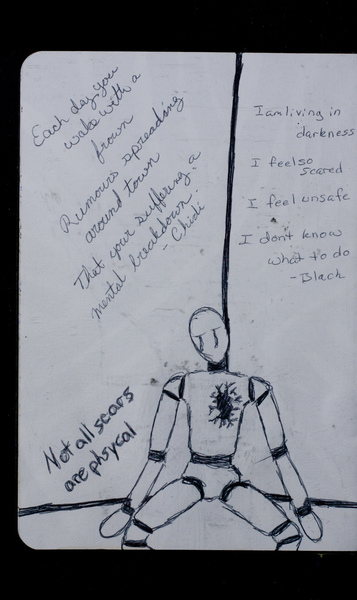 Each day you
wake with a
frown
Rumours spreading
around town
That your suffering a
mental breakdown
- Chidi
I am living in
darkness
I feel so
scared
I feel unsafe
I dont know
what to do
- Black
Not all scars
are phsycal